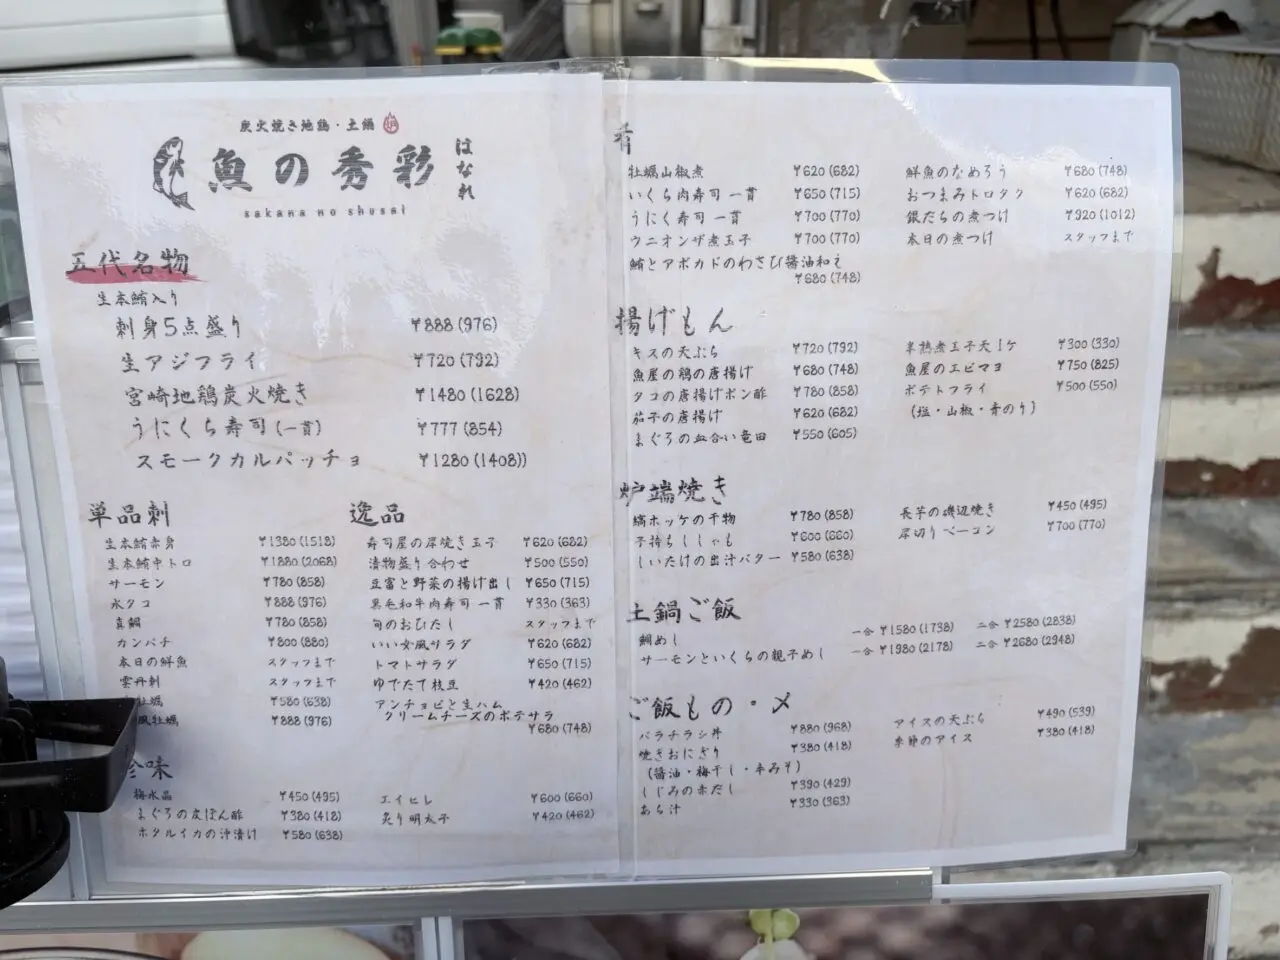 炭火焼き地鶏・土鍋
魚の秀彩
はなれ
sakana no shusai
五代名物
生本鮪入り
刺身5点盛り ¥888(976)
生アジフライ ¥720(792)
宮崎地鶏炭火焼き ¥1480(1628)
うにくら寿司(一貫) ¥777(854)
スモークカルパッチョ ¥1280(1408))
単品刺
生本鮪赤身 ¥1380(1518)
生本鮪中トロ ¥1880(2068)
サーモン ¥780(858)
水タコ ¥888(976)
真鯛 ¥780(858)
カンパチ ¥800(880)
本日の鮮魚 スタッフまで
雲丹刺 スタッフまで
牡蠣 ¥580(638)
風牡蠣 ¥888(976)
逸品
寿司屋の厚焼き玉子 ¥620(682)
漬物盛り合わせ ¥500(550)
豆富と野菜の揚げ出し ¥650(715)
黒毛和牛肉寿司 一貫 ¥330(363)
旬のおひたし スタッフまで
いい女風サラダ ¥620(682)
トマトサラダ ¥650(715)
ゆでたて枝豆 ¥420(462)
アンチョビと生ハム
クリームチーズのポテサラ
¥680(748)
珍味
梅水晶 ¥450(495)
まぐろの皮ぽん酢 ¥380(418)
ホタルイカの汁漬け ¥580(638)
エイヒレ ¥600(660)
炙り明太子 ¥420(462)
肴
牡蠣山椒煮 ¥620(682)
いくら肉寿司 一貫 ¥650(715)
うにく寿司 一貫 ¥700(770)
ウニオンザ煮玉子 ¥700(770)
鮪とアボカドのわさび醤油和え
¥680(748)
鮮魚のなめろう ¥680(748)
おつまみトロタク ¥620(682)
銀だらの煮つけ ¥920(1012)
本日の煮つけ スタッフまで
揚げもん
キスの天ぷら ¥720(792)
魚屋の鶏の唐揚げ ¥680(748)
タコの唐揚げポン酢 ¥780(858)
茄子の唐揚げ ¥620(682)
まぐろの血合い竜田 ¥550(605)
半熟煮玉子天1ケ ¥300(330)
魚屋のエビマヨ ¥750(825)
ポテトフライ ¥500(550)
(塩・山椒・青のり)
炉端焼き
縞ホッケの干物 ¥780(858)
子持ちししゃも ¥600(660)
しいたけの出汁バター ¥580(638)
長芋の磯辺焼き ¥450(495)
厚切りベーコン ¥700(770)
土鍋ご飯
鯛めし 一合 ¥1580(1738) 二合 ¥2580(2838)
サーモンといくらの親子めし 一合 ¥1980(2178) 二合 ¥2680(2948)
ご飯もの・〆
バラチラシ丼 ¥880(968)
焼きおにぎり ¥380(418)
(醤油・梅干し・辛みそ)
しじみの赤だし ¥390(429)
あら汁 ¥330(363)
アイスの天ぷら ¥490(539)
季節のアイス ¥380(418)